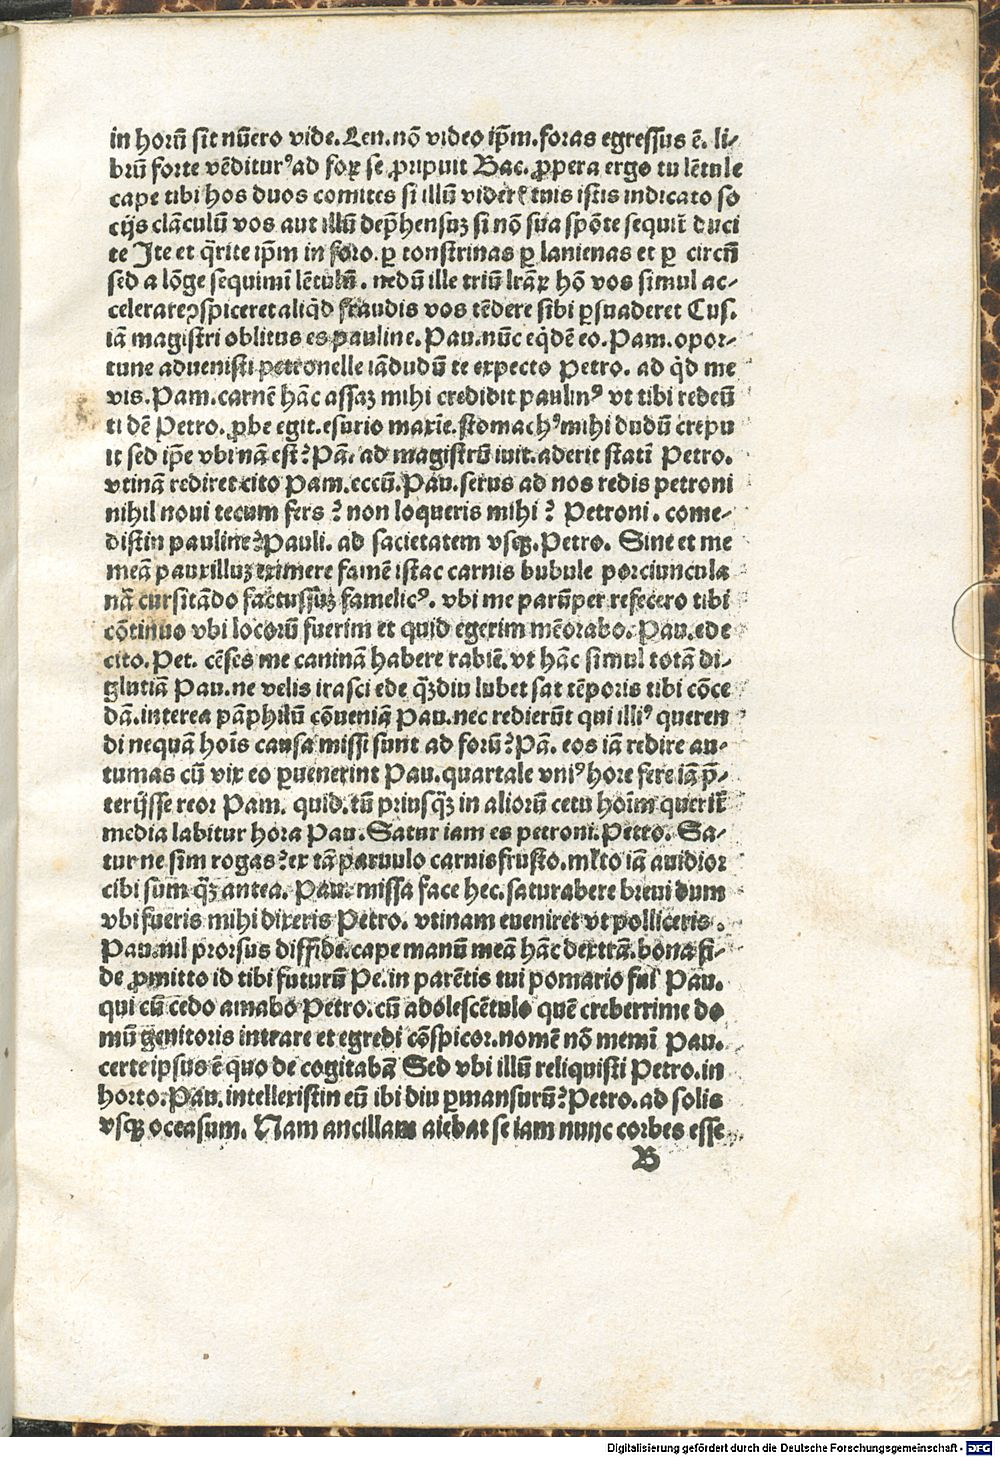 in horū sit nūero vide. Len. nō video ip̄m. foras egressus ē. li-
brū forte vēditurꝰ ad foꝝ se ꝓripuit Bac. ꝓpera ergo tu lētule
cape tibi hos duos comites si illū viderī tuis istis indicato so
cijs clāculū vos aut illū dep̄hensuꝫ si nō sua spōte sequit̄ duci
te Ite et q̄rite ip̄m in foro. ꝑ tonstrinas ꝑ lanienas et ꝑ circū
sed a lōge sequimī lētulū. nedū ille triū lr̄aꝝ hō vos simul ac-
celerare ꝯspiceret aliq̇d fraudis vos tēdere sibi ꝑsuaderet Cus.
iā magistri oblitus es pauline. Pau. nūc eq̇dē eo. Pam. opor-
tune aduenisti petronelle iādudū te expecto Petro. ad q̇d me
vis. Pam. carnē hāc assaꝫ mihi credidit paulinꝰ vt tibi redeū
ti dē Petro. ꝓbe egit. esurio maxīe. stomachꝰ mihi dudū crepu
it sed ip̄e vbi nā est? Pā. ad magistrū iuit. aderit statī Petro.
vtinā rediret cito Pam. eccū. Pau. serus ad nos redis petroni
nihil noui tecum fers? non loqueris mihi? Petroni. come-
distin pauline? Pauli. ad sacietatem vsqꝫ. Petro. Sine et me
meā pauxilluꝫ eximere famē istac carnis bubule porciuncula
nā cursitādo factussūꝫ famelicꝰ. vbi me parūper refecero tibi
cōtinuo vbi locorū fuerim et quid egerim mēorabo. Pau. ede
cito. Pet. cēses me caninā habere rabiē. vt hāc simul totā di-
glutiā Pau. ne velis irasci ede qꝫdiu lubet sat tēporis tibi cōce
dā. interea pāphilū cōueniā Pau. nec redierūt qui illiꝰ queren
di nequā hoīs causa missi sunt ad forū? Pā. eos iā redire au-
tumas cū vix eo ꝑuenerint Pau. quartale vniꝰ hore fere iā p̄-
terijsse reor Pam. quid. tū priusqꝫ in aliorū cetu hoīm querit̄
media labitur hora Pau. Satur iam es petroni. Petro. Sa-
tur ne sim rogas? ex tā paruulo carnis frusto. ml̄to iā auidior
cibi sum qꝫ antea. Pau. missa face hec. saturabere breui dum
vbi fueris mihi dixeris Petro. vtinam eueniret vt polliceris.
Pau. nil prorsus diffide. cape manū meā hāc dextrā. bona fi-
de ꝓmitto id tibi futurū Pe. in parētis tui pomario fui Pau.
qui cū cedo amabo Petro. cū adolescētulo quē creberrime do
mū genitoris intrare et egredi cōspicor. nomē nō memī Pau.
certe ipsus ē quo de cogitabā Sed vbi illū reliquisti Petro. in
horto. Pau. intellexistin eū ibi diu ꝑmansurū? Petro. ad solis
vsqꝫ occasum. Nam ancillam aiebat se iam nunc corbes esse
B
Digitalisierung gefördert durch die Deutsche Forschungsgemeinschaft - DFG